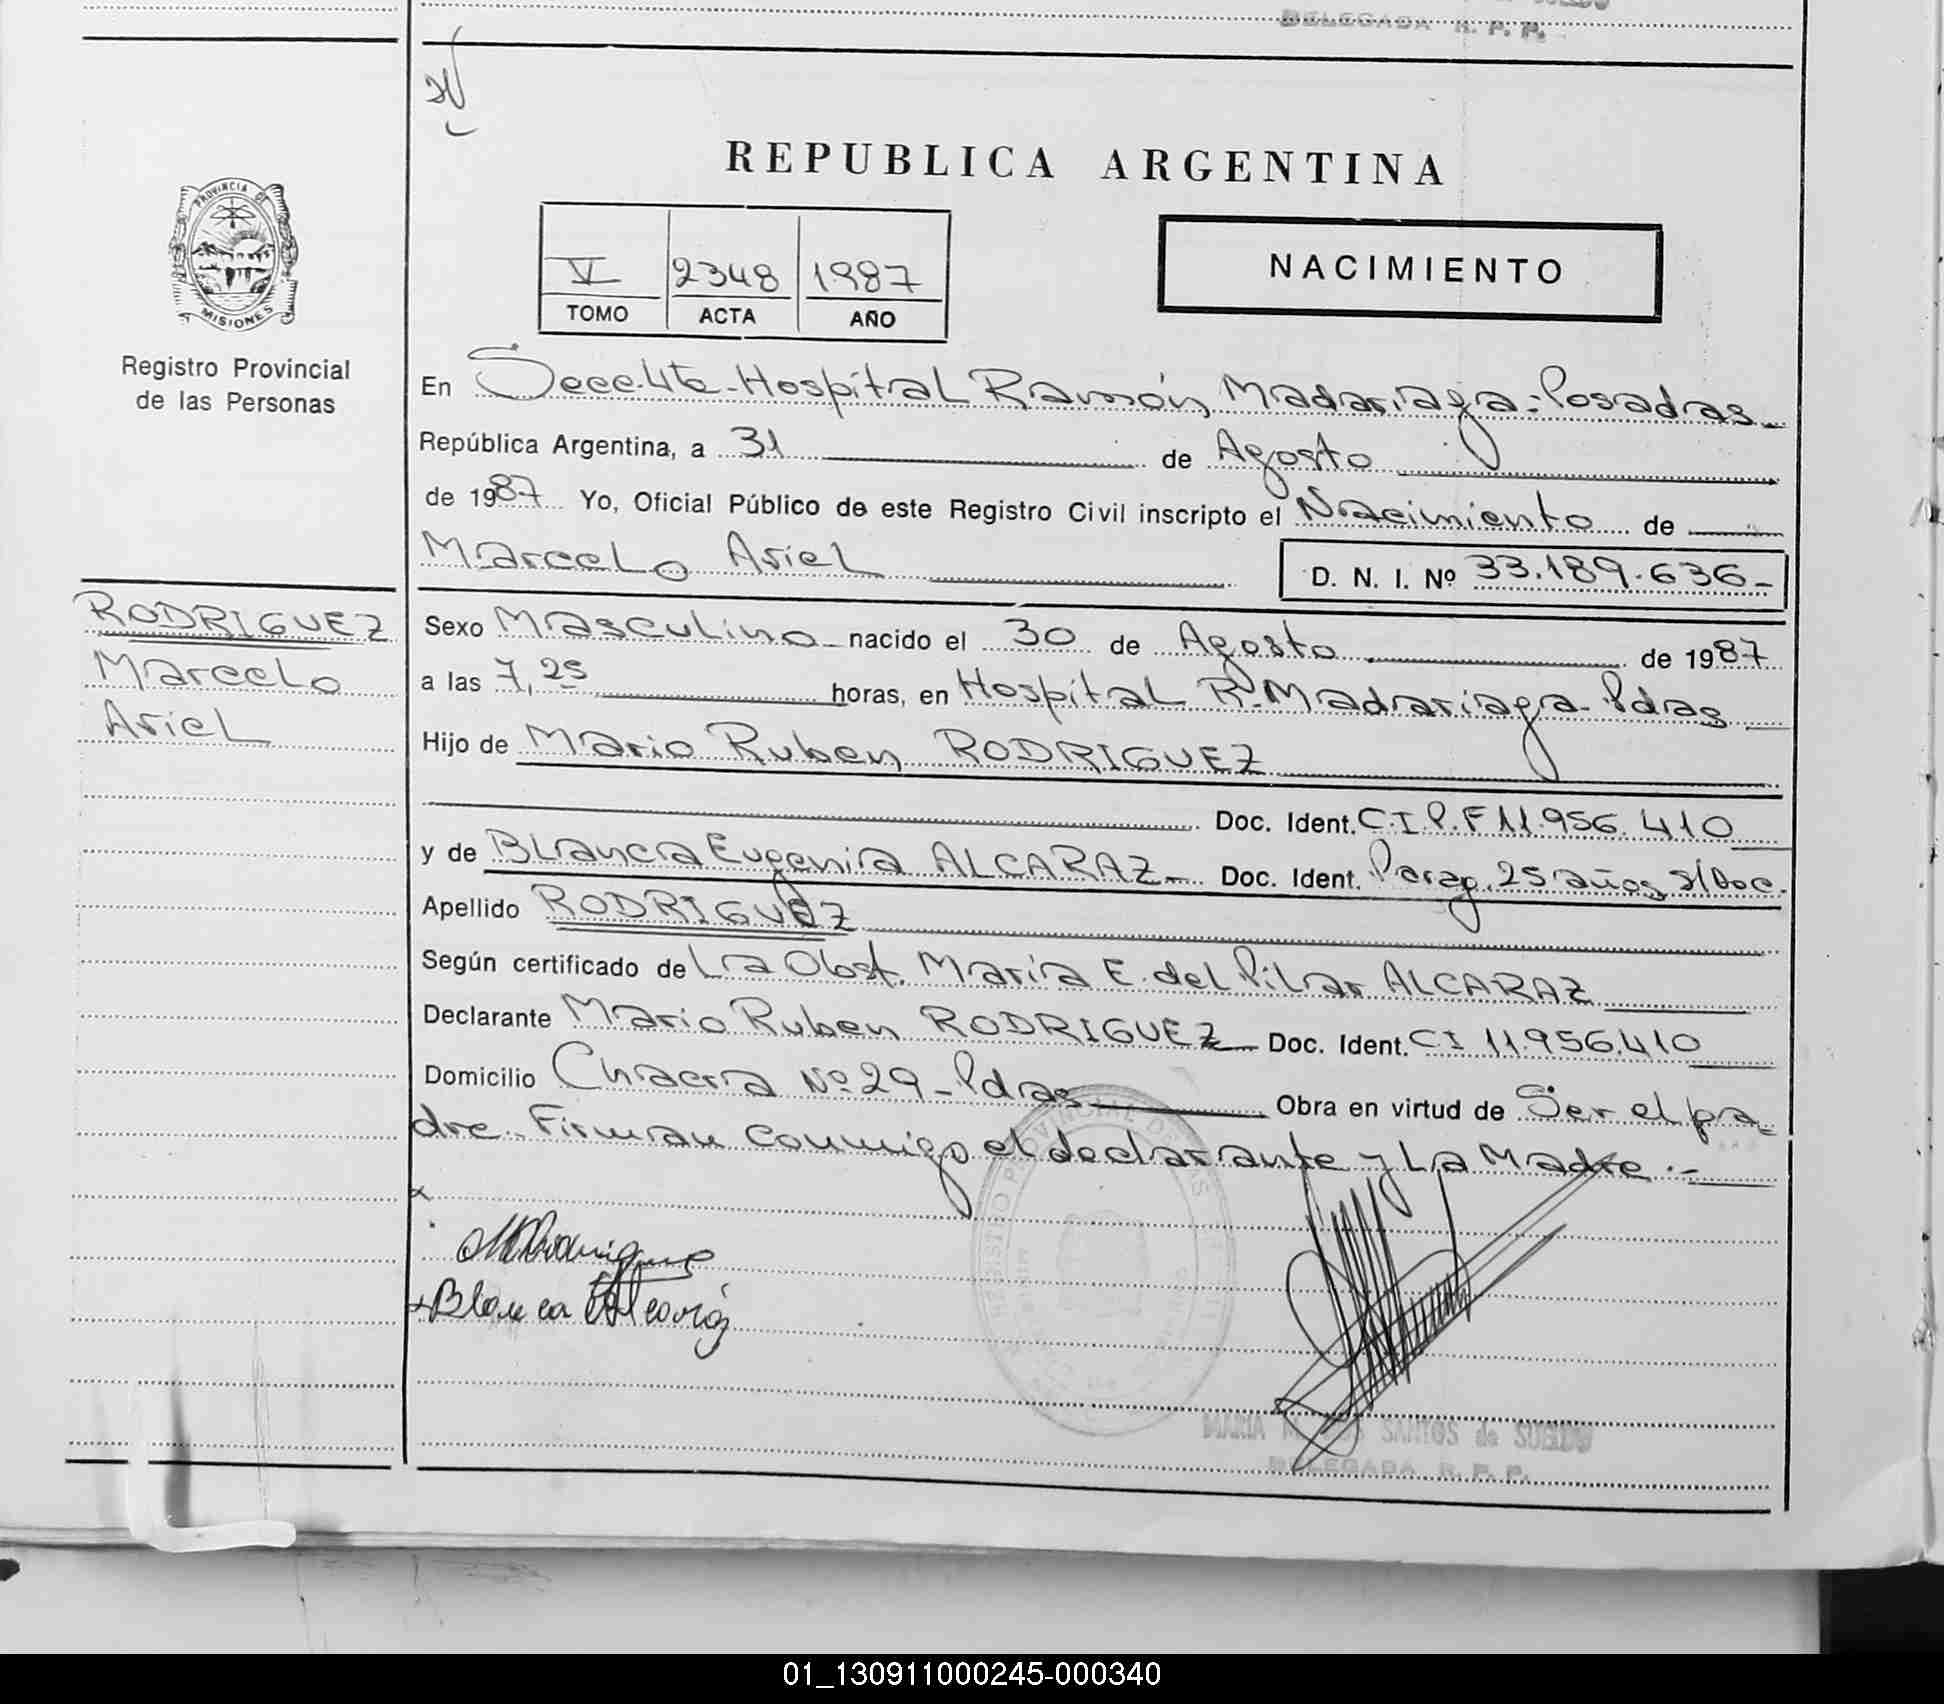 DELEGADA R. P. P.
REPUBLICA ARGENTINA
PROVINCIA DE
MISIONES
Registro Provincial
de las Personas
V 2348 1987
TOMO ACTA AÑO
NACIMIENTO
En Secc. 4ta - Hospital Ramón Madariaga - Posadas
República Argentina, a 31 de Agosto
de 1987 Yo, Oficial Público de este Registro Civil inscripto el Nacimiento de
Marcelo Ariel D. N. I. Nº 33.189.636-
RODRIGUEZ
Marcelo
Ariel
Sexo Masculino nacido el 30 de Agosto de 1987
a las 7,25 horas, en Hospital R. Madariaga - Pdas
Hijo de Mario Ruben RODRIGUEZ
Doc. Ident. C.I.P.F 11.956.410
y de Blanca Eugenia ALCARAZ- Doc. Ident. Parag. 25 años s/Doc.
Apellido RODRIGUEZ
Según certificado de La Obst. María E. del Pilar ALCARAZ
Declarante Mario Ruben RODRIGUEZ Doc. Ident. CI 11.956.410
Domicilio Chacra Nº 29 - Pdas Obra en virtud de Ser el pa-
dre. Firman conmigo el declarante y La Madre.-
MRRodriguez
Blanca E Alcaraz
REGISTRO PROVINCIAL DE LAS
MARIA SANTOS de SUELDO
DELEGADA R. P. P.
01_130911000245-000340